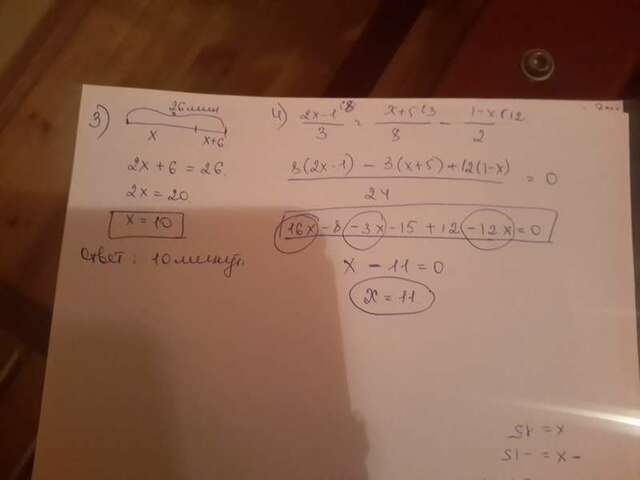 3) 26 мин
x x+6
2x + 6 = 26.
2x = 20
x = 10
Ответ: 10 минут.
4) (2x-1)/3 ⁽⁸ = (x+5)/8 ⁽³ - (1-x)/2 ⁽¹²
(8(2x-1) - 3(x+5) + 12(1-x))/24 = 0
16x - 8 - 3x - 15 + 12 - 12x = 0
x - 11 = 0
x = 11.
x = 15
-x = -15